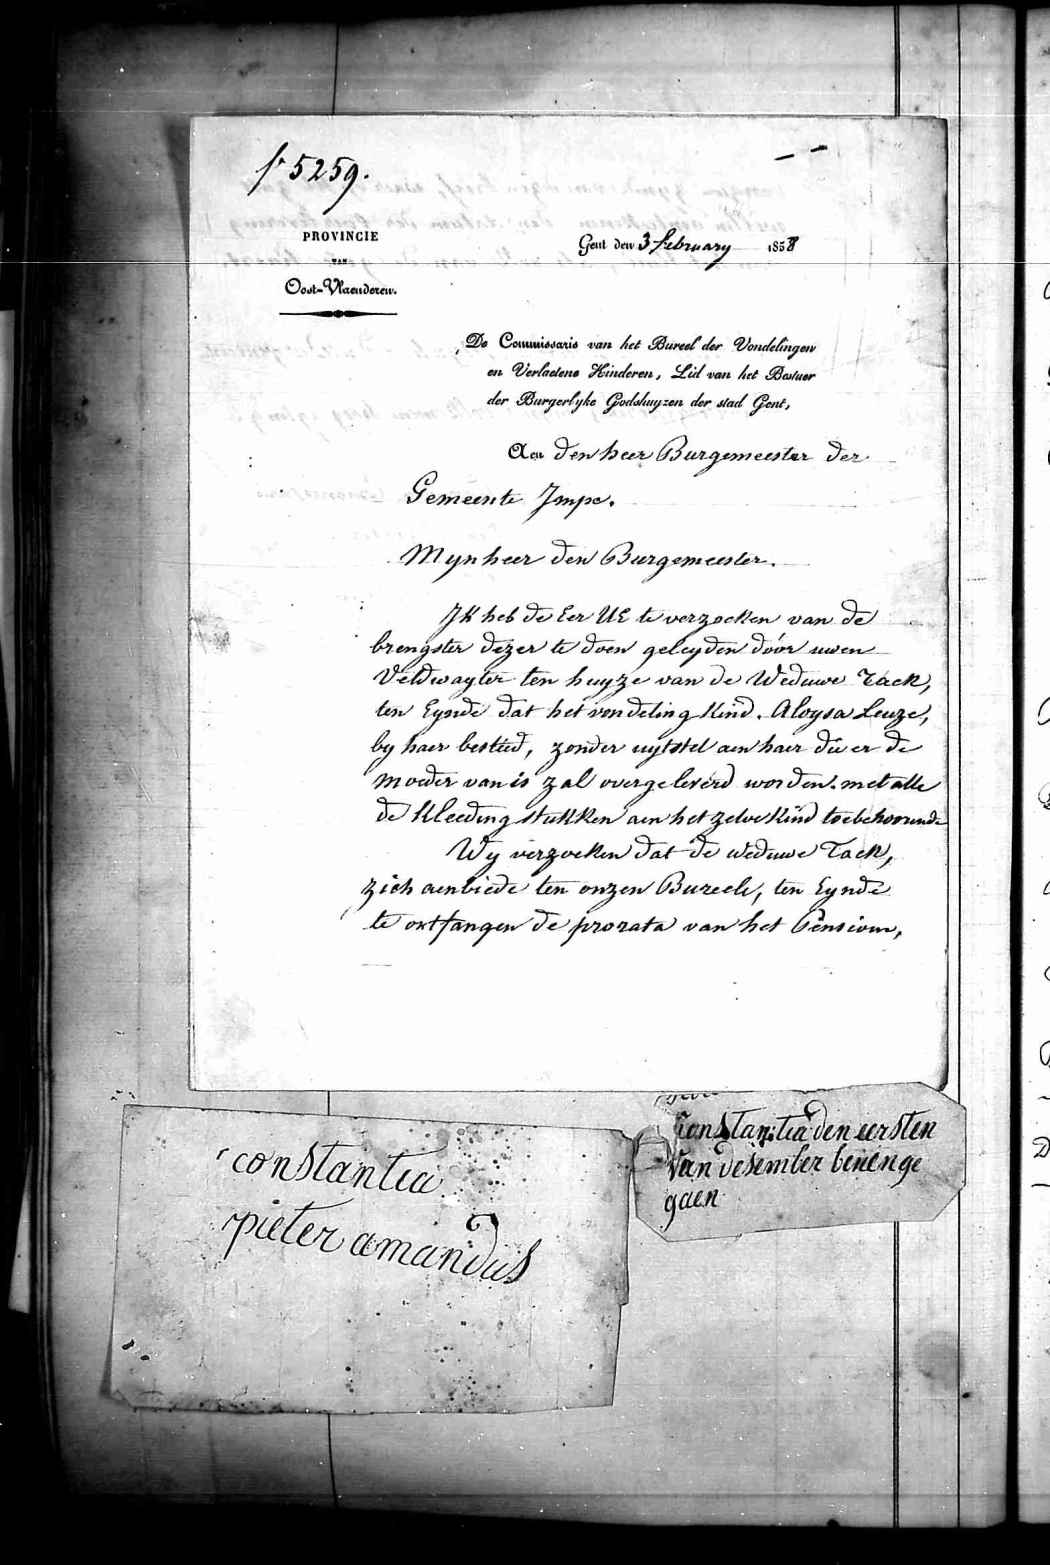 f° 5259.
PROVINCIE
VAN
Oost-Vlaenderen.
Gent den 3 february 1858
De Commissaris van het Bureel der Vondelingen
en Verlaetene Kinderen, Lid van het Bestuer
der Burgerlyke Godshuyzen der stad Gent,
Aen den heer Burgemeester der
Gemeente Impe.
Mynheer den Burgemeester.
Ik heb de Eer UE te verzoeken van de
brengster dezer te doen geleyden dóór uwen
Veldwagter ten huyze van de Weduwe Tack,
ten Eynde dat het vondeling kind. Aloysa Leuze,
by haer besteed, zonder uytstel aen haer die er de
moeder van is zal overgeleverd worden. met alle
de kleeding stukken aen het zelve kind toebehoorende
Wy verzoeken dat de weduwe Tack,
zich aenbiede ten onzen Bureele, ten Eynde
te ontfangen de prorata van het Pensioen,
constantia
pieter amandus
Constantia den eersten
Van desember
gaen